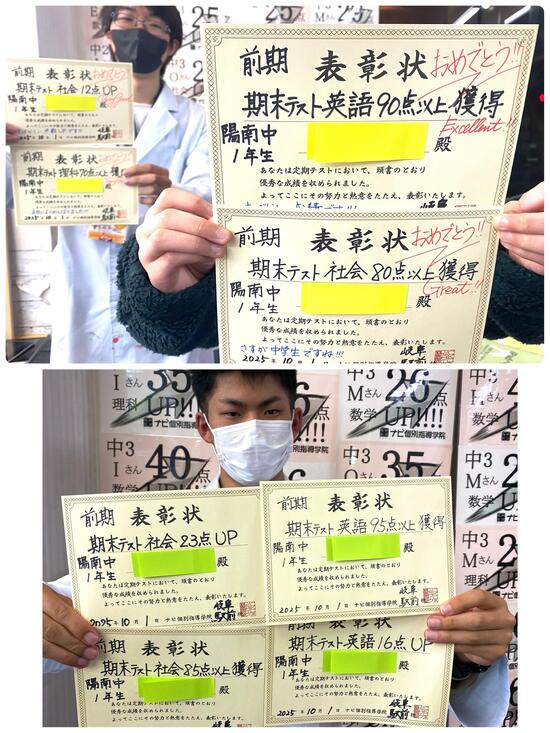 前期 表彰状
おめでとう!!
期末テスト社会12点UP
陽南中
1年生
殿
前期 表彰状
期末テスト理科70点以上獲
陽南中
1年生
殿
前期 表彰状
おめでとう!!
期末テスト英語90点以上獲得
Excellent!!
陽南中
1年生
殿
あなたは定期テストにおいて、頭書のとおり
優秀な成績を収められました。
よってここにその努力と熱意をたたえ、表彰いたします。
前期 表彰状
おめでとう!!
期末テスト社会80点以上獲得
Great!!
陽南中
1年生
殿
あなたは定期テストにおいて、頭書のとおり
優秀な成績を収められました。
よってここにその努力と熱意をたたえ、表彰いたします。
さすが中学生ですね!!!
岐阜
2025 10 1
I 35点
理科 UP!!!!
中3
Mさん
数学
26点
UP!!!!
ナビ個別指導学院
中3
I
40点
中3
Oさん
35点
中3
Mさん
数学
前期 表彰状
期末テスト社会23点UP
陽南中
1年生
殿
あなたは定期テストにおいて、頭書のとおり
優秀な成績を収められました。
よってここにその努力と熱意をたたえ、表彰いたします。
岐阜
駅前
2025年 10月 1日 ナビ個別指導学院
前期 表彰状
期末テスト英語95点以上獲得
陽南中
1年生
殿
あなたは定期テストにおいて、頭書のとおり
優秀な成績を収められました。
よってここにその努力と熱意をたたえ、表彰いたします。
岐阜
駅前
2025年 10月 1日 ナビ個別指導学院
期末テスト社会85点以上獲得
陽南中
1年生
殿
あなたは定期テストにおいて、頭書のとおり
優秀な成績を収められました。
よってここにその努力と熱意をたたえ、表彰いたします。
岐阜
駅前
2025年 10月 1日 ナビ個別指導学院
期末テスト英語16点UP
陽南中
1年生
殿
あなたは定期テストにおいて、頭書のとおり
優秀な成績を収められました。
よってここにその努力と熱意をたたえ、表彰いたします。
岐阜
駅前
2025年 10月 1日 ナビ個別指導学院